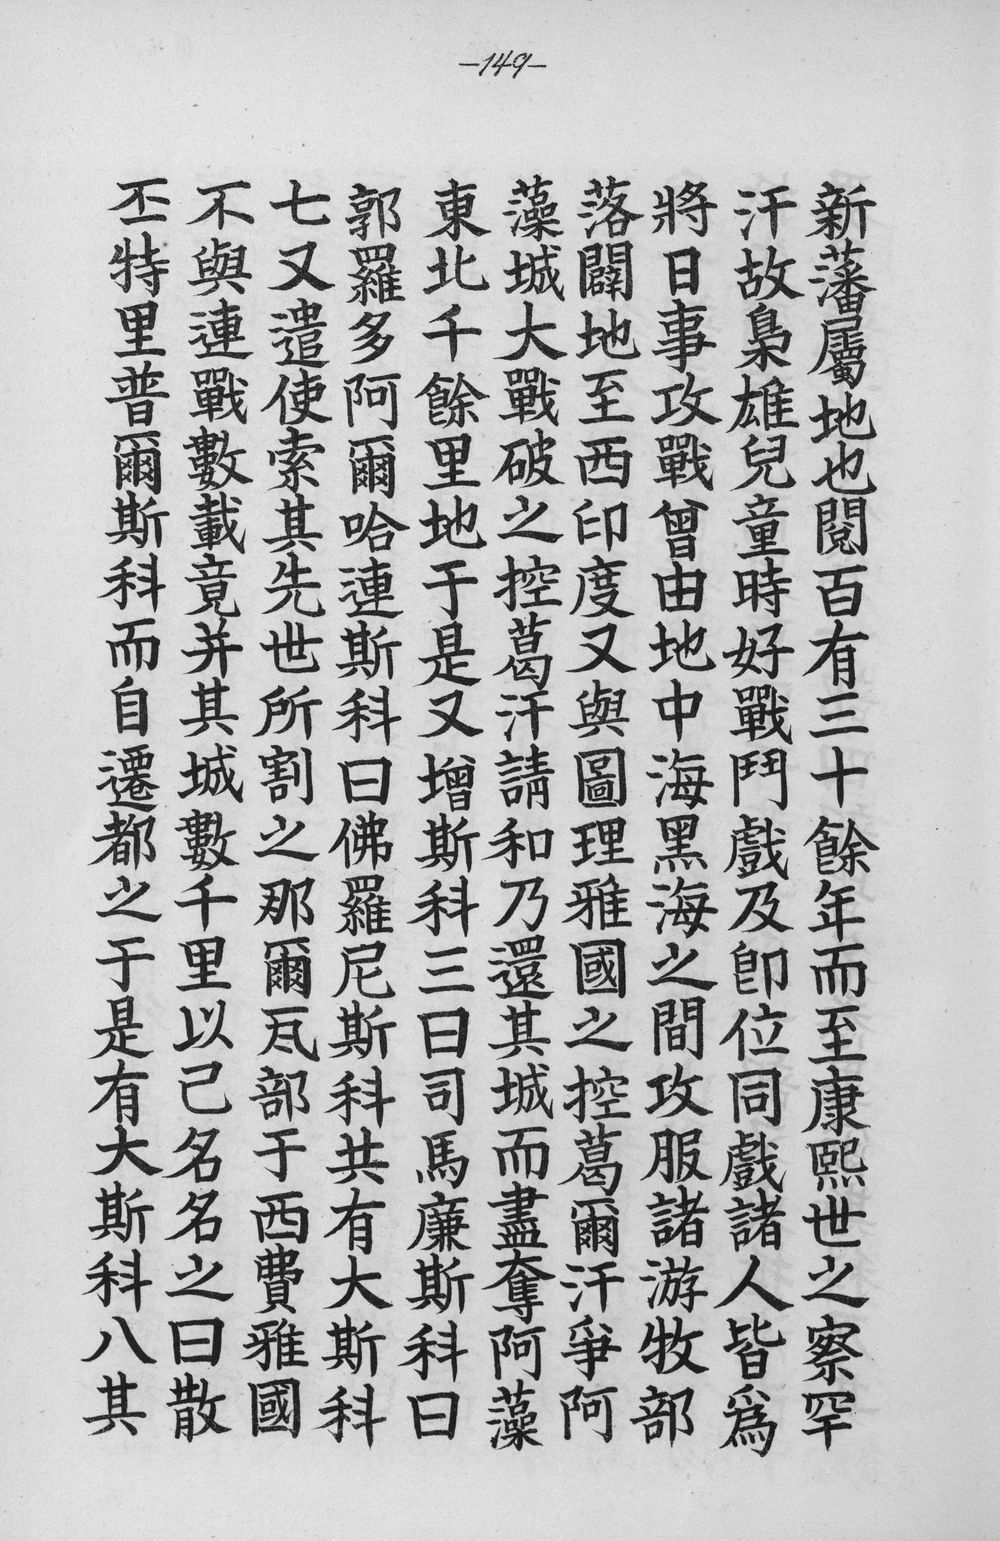 -149-
新藩屬地也閱百有三十餘年而至康熙世之察罕
汗故梟雄兒童時好戰鬥戲及卽位同戲諸人皆爲
將日事攻戰曾由地中海黑海之間攻服諸游牧部
落闢地至西印度又與圖理雅國之控葛爾汗爭阿
藻城大戰破之控葛汗請和乃還其城而盡奪阿藻
東北千餘里地于是又增斯科三曰司馬廉斯科曰
郭羅多阿爾哈連斯科曰佛羅尼斯科共有大斯科
七又遣使索其先世所割之那爾瓦部于西費雅國
不與連戰數載竟并其城數千里以己名名之曰散
丕特里普爾斯科而自遷都之于是有大斯科八其